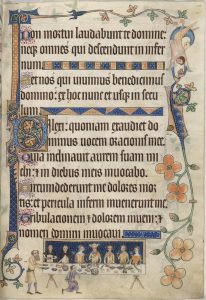 Non mortui laudabunt te domine:
neq; omnes qui descendunt in infer
num.
Set nos qui uiuimus benedicimus
domino: ex hoc nunc et usq; in secu
lum.
Dilexi: quoniam exaudiet do
minus uocem orationis mee.
Quia inclinauit aurem suam mi
chi: et in diebus meis inuocabo.
Circumdederunt me dolores mor
tis: et pericula inferni inuenerunt me.
Tribulationem et dolorem inueni: et
nomen domini inuocaui.